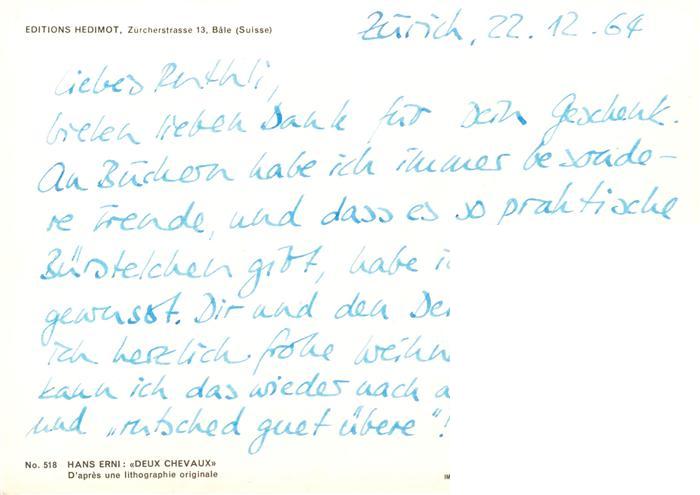 EDITIONS HEDIMOT, Zürcherstrasse 13, Bâle (Suisse)
Zürich, 22. 12. 64
Liebes Ruthli,
vielen lieben Dank für Dein Geschenk.
An Büchern habe ich immer besonde-
re Freude, und dass es so praktische
Bürstelchen gibt, habe
gewusst. Dir und den
ich herzlich frohe
kann ich das wieder nach
und „rutsched guet übere“!
No. 518 HANS ERNI: «DEUX CHEVAUX»
D'après une lithographie originale